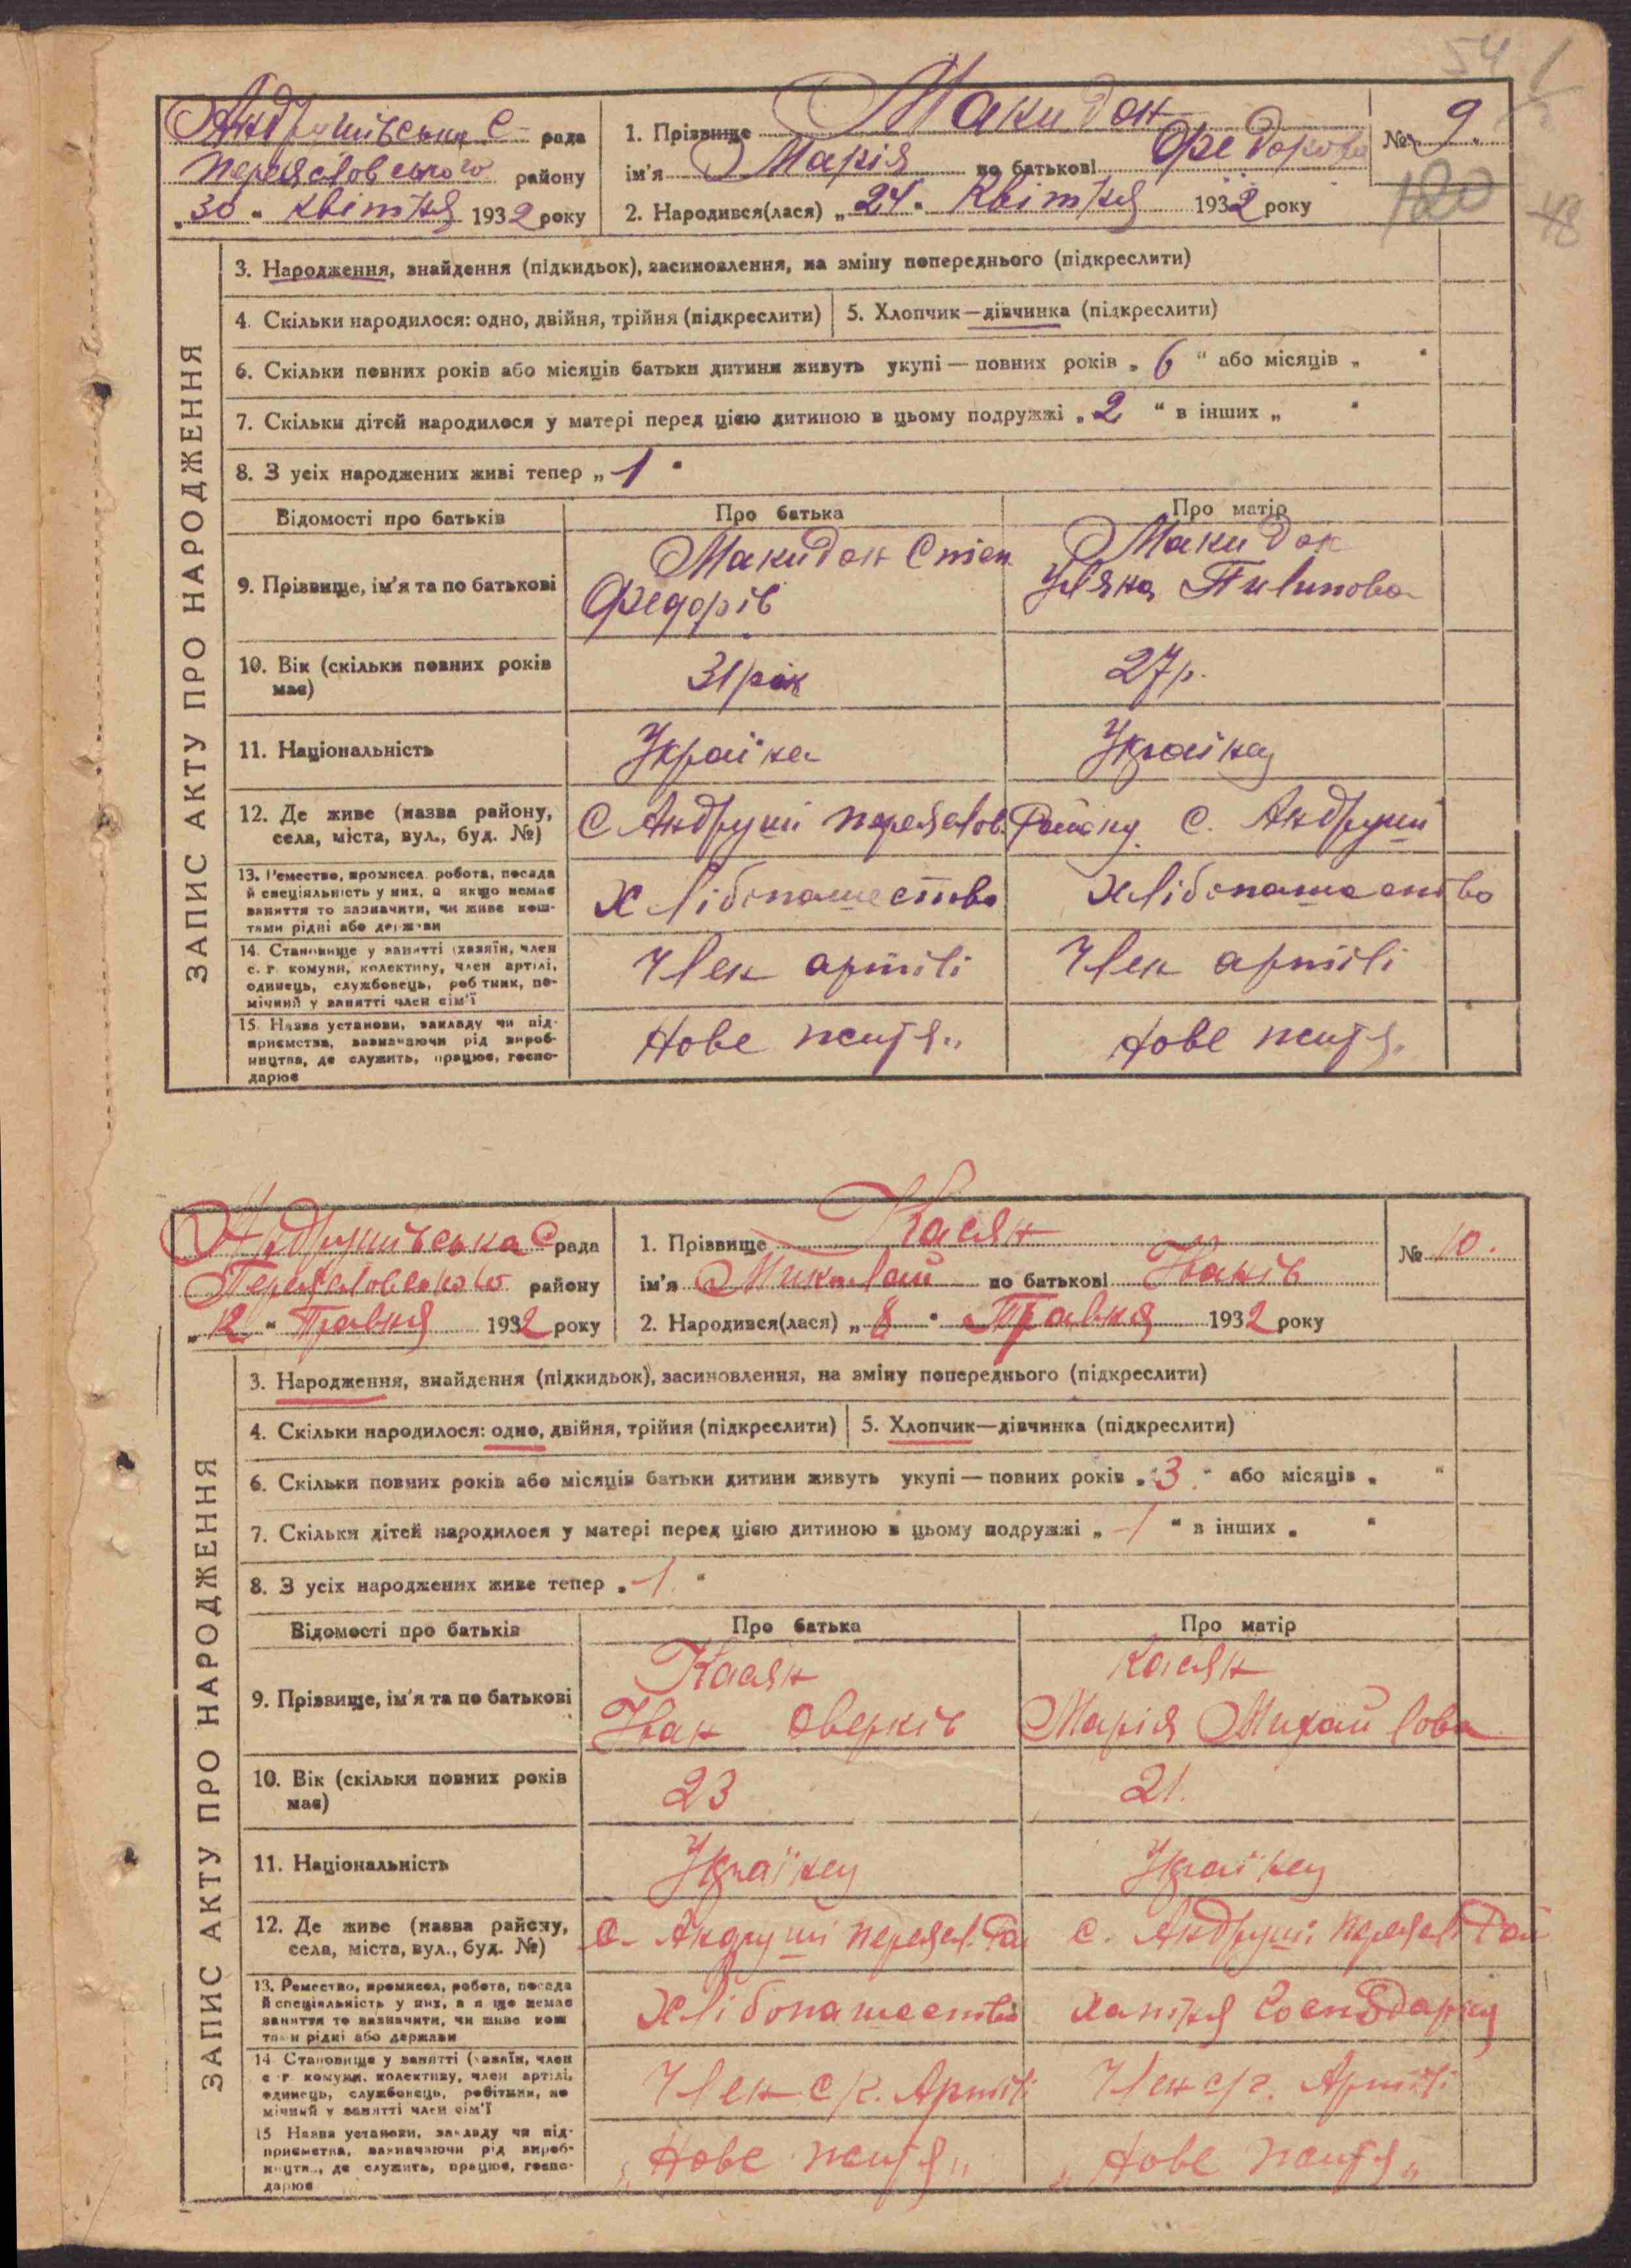 54
Андрушівська С рада
Переяславського району
„30“ квітня 1932 року
1. Прізвище Макидон
ім'я Марія по батькові Федорова
2. Народився(лася) „24“ Квітня 1932 року
№ 9.
120
48
ЗАПИС АКТУ ПРО НАРОДЖЕННЯ
3. Народження, знайдення (підкидьок), засиновлення, на зміну попереднього (підкреслити)
4. Скільки народилося: одно, двійня, трійня (підкреслити) 5. Хлопчик—дівчинка (підкреслити)
6. Скільки повних років або місяців батьки дитини живуть укупі — повних років „6“ або місяців „ “
7. Скільки дітей народилося у матері перед цією дитиною в цьому подружжі „2“ в інших „ “
8. З усіх народжених живі тепер „1“
Відомості про батьків Про батька Про матір
9. Прізвище, ім'я та по батькові
Макидон Степ
Федорів
Макидон
Уляна Пилипова
10. Вік (скільки повних років має) 31 рік 27 р.
11. Національність Україна Українец
12. Де живе (назва району, села, міста, вул., буд. №) С Андруші переяслов. Району с. Андруши
13. Ремество, промисел, робота, посада
й спеціяльність у них, а якщо немає
заняття то зазначити, чи живе кош-
тами рідні або держави
Хлібопашество Хлібопашество
14. Становище у занятті (хазяїн, член
с. г. комуни, колективу, член артілі,
одинець, службовець, робітник, по-
мічний у занятті член сім'ї
Член артілі Член артілі
15. Назва установи, закладу чи під-
приємства, зазначаючи рід вироб-
ництва, де служить, працює, госпо-
дарює
Нове життя„ Нове життя.
Андрушівська С рада
Переясловского району
„12“ Травня 1932 року
1. Прізвище Касян
ім'я Миколай по батькові Іванів
2. Народився(лася) „8“ Травня 1932 року
№ 10.
ЗАПИС АКТУ ПРО НАРОДЖЕННЯ
3. Народження, знайдення (підкидьок), засиновлення, на зміну попереднього (підкреслити)
4. Скільки народилося: одно, двійня, трійня (підкреслити) 5. Хлопчик—дівчинка (підкреслити)
6. Скільки повних років або місяців батьки дитини живуть укупі — повних років „3“ або місяців „ “
7. Скільки дітей народилося у матері перед цією дитиною в цьому подружжі „1“ в інших „ “
8. З усіх народжених живе тепер „1.“
Відомості про батьків Про батька Про матір
9. Прізвище, ім'я та по батькові
Касян
Іван Оверків
Касян
Марія Михайлова
10. Вік (скільки повних років має) 23 21.
11. Національність Українец Українец
12. Де живе (назва району, села, міста, вул., буд. №) С. Андруші переясл. Ра с. Андруші переясл Рай
13. Ремество, промисел, робота, посада
й спеціяльність у них, а якщо немає
заняття то зазначити, чи живе кош
тами рідні або держави
Хлібопашество хатня Господариц
14. Становище у занятті (хазяїн, член
с г комуни, колективу, член артілі,
одинець, службовець, робітник, по
мічний у занятті член сім'ї
Член с/г. Артілі Член с/г. Артілі
15 Назва установи, закладу чи під-
приємства, зазначаючи рід вироб-
ництв., де служить, працює, госпо-
дарює
„Нове життя„ „Нове життя„